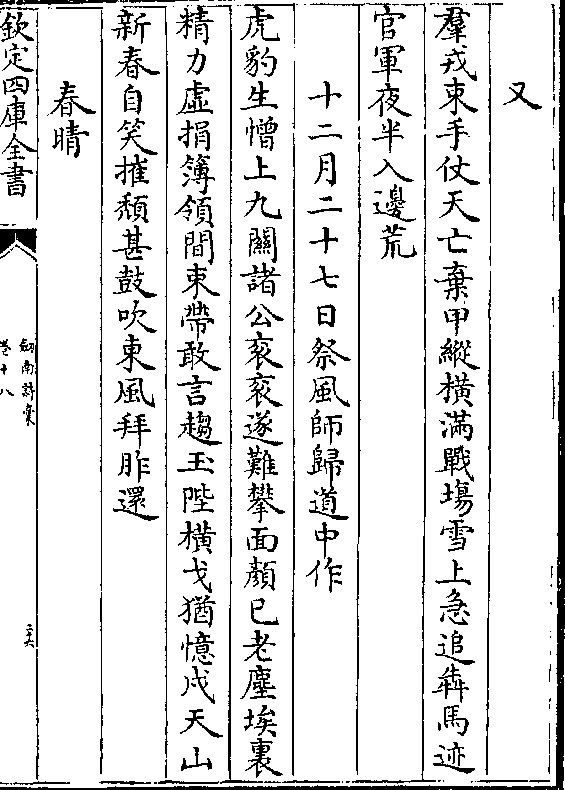 又
羣戎束手仗天亡棄甲縱横滿戰塲雪上急追犇馬迹
官軍夜半入邊荒
十二月二十七日祭風師歸道中作
虎豹生憎上九關諸公衮衮遂難攀面顔已老塵埃裏
精力虚捐簿領間束帶敢言趨玉陛横戈猶憶戍天山
新春自笑摧頽甚鼓吹東風拜胙還
春晴
欽定四庫全書
劒南詩稾
卷十八
二六